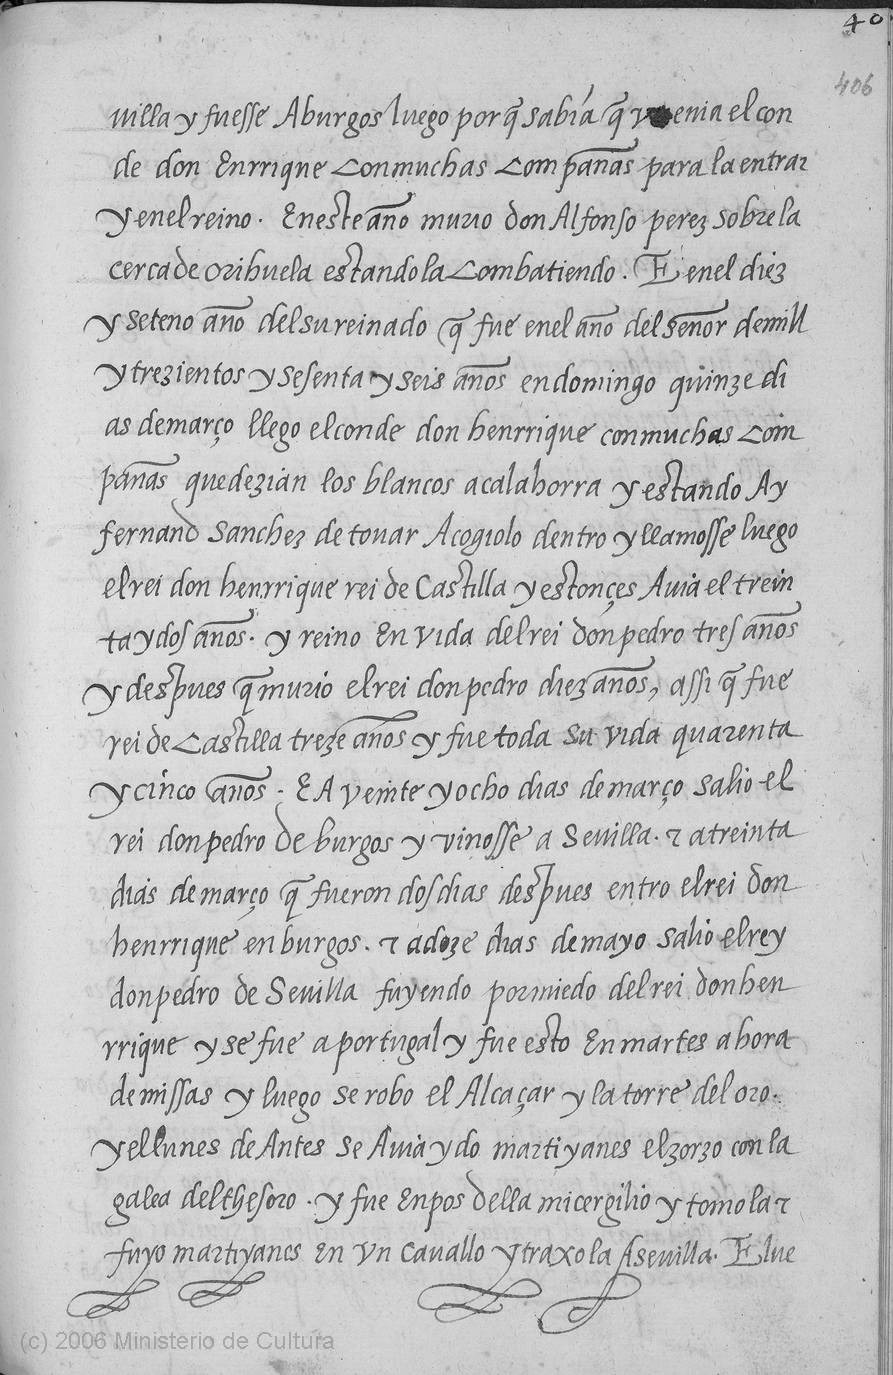 40
406
uilla y fuesse A burgos luego porq̃ sabía q̃ venia el con
de don Enrrique Con muchas Compañas para la entrar
y en el reino. En este año murio don Alfonso perez sobre la
cerca de orihuela estandola Combatiendo. E en el diez
y seteno año del su reinado q̃ fue en el año del señor de mill
y trezientos y sesenta y seis años en domingo quinze di
as de março llego el conde don henrrique con muchas Com
pañas que dezian los blancos a calahorra y estando Ay
fernand Sanchez de touar Acogiolo dentro y llamosse luego
el rei don henrrique rei de Castilla y estonçes Auia el trein
ta y dos años. y reino En vida del rei don pedro tres años
y despues q̃ murio el rei don pedro diez años, assi q̃ fue
rei de Castilla treze años y fue toda su vida quarenta
y cinco años. E A veinte y ocho dias de março salio el
rei don pedro de burgos y vinosse a Seuilla. τ a treinta
dias de março q̃ fueron dos dias despues entro el rei don
henrrique en burgos. τ a doze dias de mayo salio el rey
don pedro de Seuilla fuyendo por miedo del rei don hen
rrique y se fue a portugal y fue esto En martes a hora
de missas y luego se robo el Alcaçar y la torre del oro.
y el lunes de Antes se Auia ydo marti yanes el zorzo con la
galea del thesoro. y fue En pos della micer gilio y tomola τ
fuyo marti yanes En vn cauallo y traxola A seuilla. E lue
(c) 2006 Ministerio de Cultura